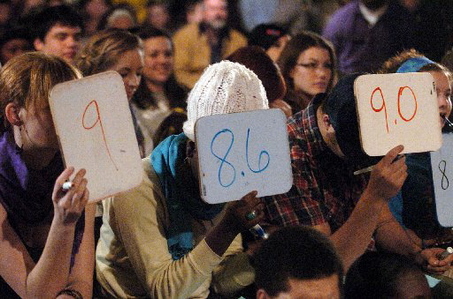 9
8.6
9.0
8